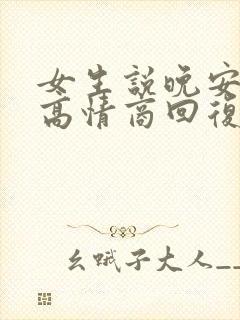 女生説晚安
高情商回復
幺哦子大人__